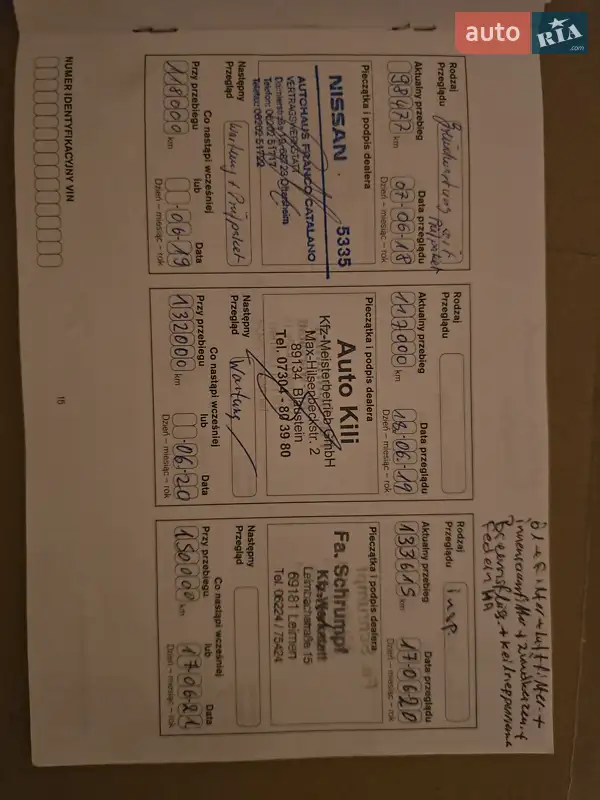 auto RIA
.com
Rodzaj
Przeglądu
Aktualny przebieg
98477 km
Data przeglądu
07-06-18
Dzień – miesiąc – rok
Pieczątka i podpis dealera
NISSAN 5335
AUTOHAUS FRANCO CATALANO
VERTRAGSWERKSTATT
Następny
Przegląd
Wartung + Prüfpaket
Przy przebiegu
118000 km
Co nastąpi wcześniej
lub
Data
06-19
Dzień – miesiąc – rok
Rodzaj
Przeglądu
Aktualny przebieg
117000 km
Data przeglądu
13-06-19
Dzień – miesiąc – rok
Pieczątka i podpis dealera
Auto Kili
Kfz-Meisterbetrieb GmbH
Max-Hilsenbeckstr. 2
89134 Blaustein
Tel. 07304 - 80 39 80
Następny
Przegląd
Wartung
Przy przebiegu
132000 km
Co nastąpi wcześniej
lub
Data
06-20
Dzień – miesiąc – rok
Rodzaj
Przeglądu
insp
Aktualny przebieg
133615 km
Data przeglądu
170620
Dzień – miesiąc – rok
Pieczątka i podpis dealera
Fa. Schrumpf
Kfz-Werkstatt
Leimbachstraße 15
69181 Leimen
Tel. 06224 / 75424
Następny
Przegląd
Przy przebiegu
150000 km
Co nastąpi wcześniej
lub
Data
170621
Dzień – miesiąc – rok
Ölfilter + Luftfilter +
innenraumfilter + zündkerzen +
Federn HA
NUMER IDENTYFIKACYJNY VIN